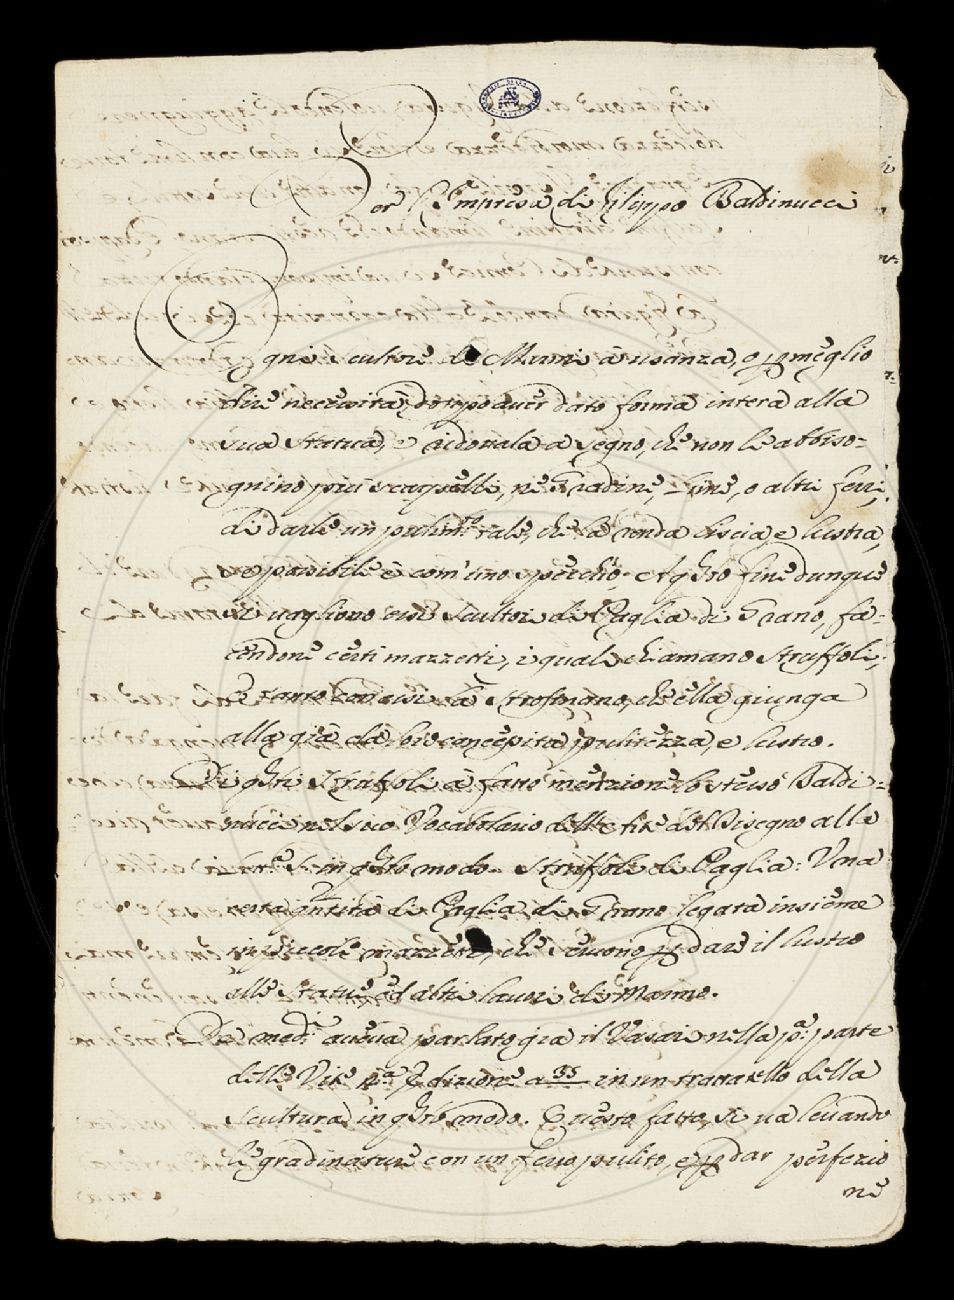 Per l'Impresa di Filippo Baldinucci
Ogni Scultore di Marmi à usanza, o p meglio
dire necessità, doppo aver dato forma intera alla
sua Statua, e ridottala a segno, che non le abbiso=
gnino più scarpelli, ne Gradine, Lime, o altri ferri,
di darle un pulim.to tale, che la renda liscia, e lustra,
se possibile è com' uno specchio. A q.sto fine dunque
si vagliono essi Scultori di Paglia di Grano, fa=
cendone certi mazzetti, i quali chiamano Struffoli,
e tanto con essi la Strofinano, che ella giunga
alla già da loro concepita pulitezza, e lustro.
Di q.sti Struffoli à fatto menzione lo stesso Baldi=
nucci nel suo Vocabolario delle Arti del Disegno alla
in q.sto modo. Struffoli di Paglia: Una
certa q.ntità di Paglia di Grano legata insieme
in piccoli mazzetti, che servono p dare il lustro
alle Statue ed altri lavori di Marmo.
De med.i aveva parlato già il Vasari nella p.a parte
delle Vite p.a Edizione a 35 in un trattatello della
Scultura in q.sto modo. E questo fatto, si va levando
le gradinature con un ferro pulito, e p dar perfezio
ne